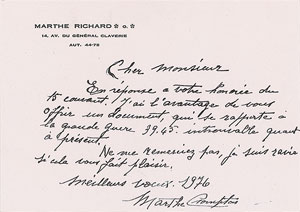 MARTHE RICHARD
14, AV. DU GÉNÉRAL CLAVERIE
AUT. 44-78
Cher Monsieur
En réponse a votre honorée du
15 courant, j'ai l'avantage de vous
offrir un document, qui se rapporte à
la grande guere 39.45 introuvable quant
à présent.
Ne me remerciez pas, je suis ravie
si cela vous fait plaisir.
Meilleurs vœux. 1976
Marthe